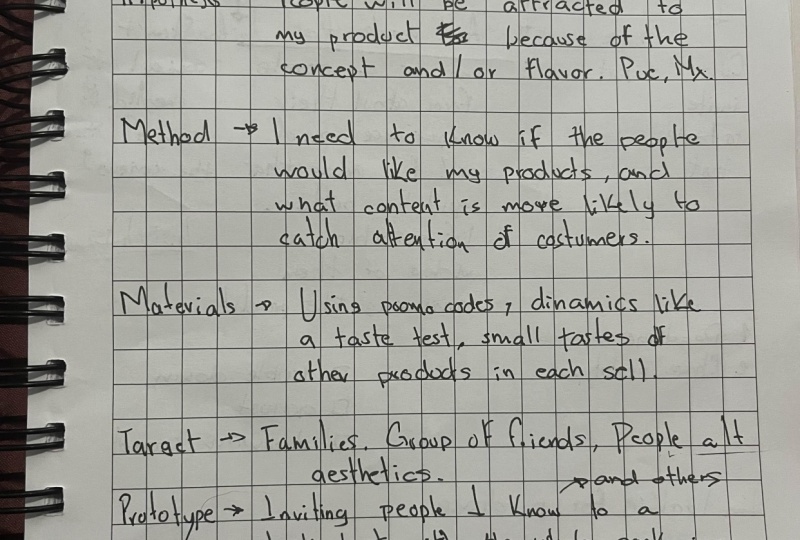 People will be attracted to
my product because of the
concept and/or flavor. Puc, Mx.
Method → I need to know if the people
would like my products, and
what content is more likely to
catch attention of costumers.
Materials → Using promo codes, dinamics like
a taste test, small tastes of
other products in each sell.
Taract → Families. Group of friends, People alt
aesthetics.
→ and others
Prototype → Inviting people I know to a